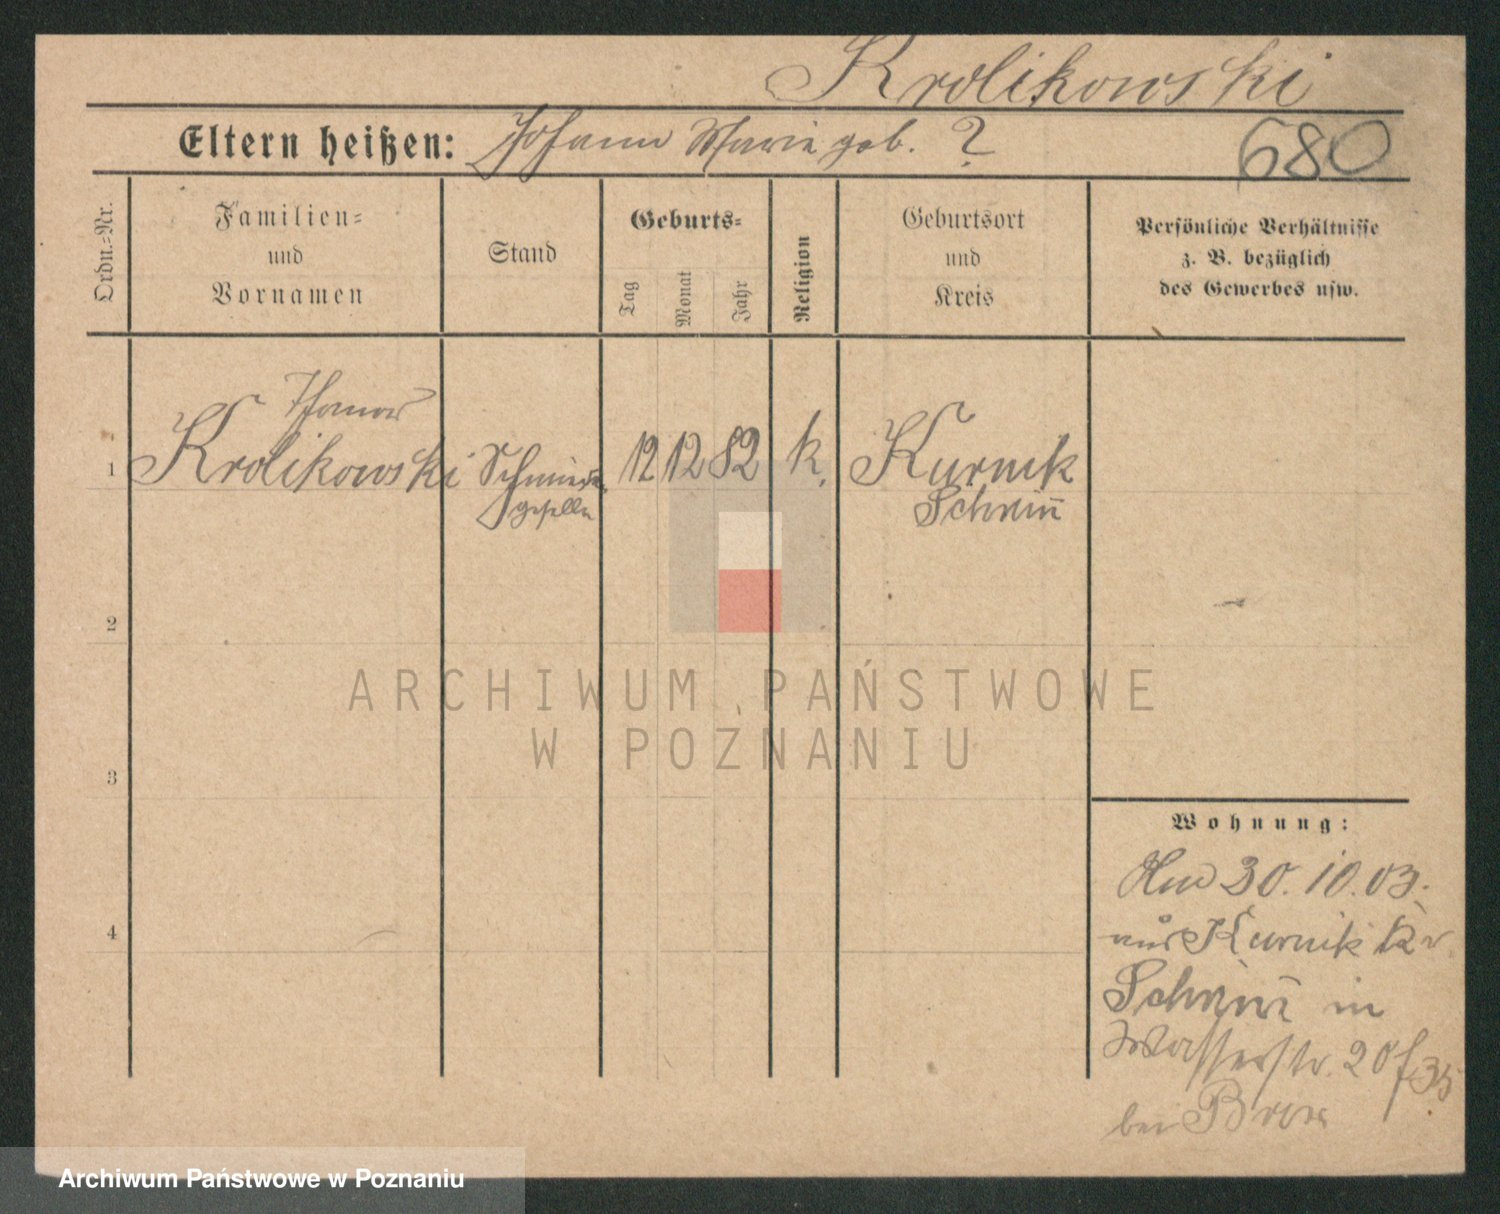 Krolikowski
Eltern heißen: Johann Marie geb. ?
680
Ordn.=Nr.
Familien=
und
Vornamen
Stand
Geburts=
Tag
Monat
Jahr
Religion
Geburtsort
und
Kreis
Persönliche Verhältnisse
z. B. bezüglich
des Gewerbes usw.
Thomas
1 Krolikowski Schmiede- 12 12 82 k. Kurnik
geselle Schrim̄
2
3
4
ARCHIWUM PAŃSTWOWE
W POZNANIU
Wohnung:
30. 10. 03.
aus Kurnik Kr
Schrim̄ in
Wasserstr. 20
bei
Archiwum Państwowe w Poznaniu